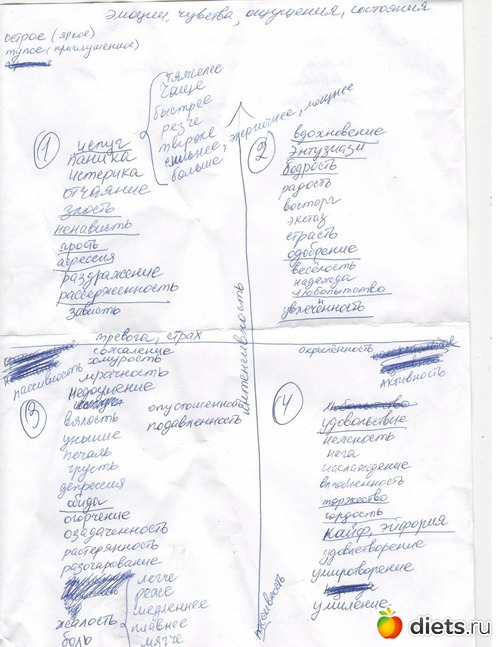 эмоции, чувства, ощущения, состояния
острое (яркое)
тупое (приглушенное)
тяжелее
чаще
быстрее
резче
твёрже
сильнее, энергичнее, мощнее
больше
1
испуг
паника
истерика
отчаяние
злость
ненависть
ярость
агрессия
раздражение
рассерженность
зависть
2
вдохновение
энтузиазм
бодрость
радость
восторг
экстаз
страсть
одобрение
весёлость
надежда
любопытство
и
увлечённость
интенсивность
тревога, страх
пассивность
сожаление
хмурость
мрачность
недоумение
3
вялость
уныние
печаль
грусть
депрессия
обида
огорчение
озадаченность
растерянность
разочарование
жалость
боль
опустошенность
подавленность
легче
реже
медленнее
плавнее
мягче
окрылённость
активность
4
любопытство
удовольствие
нежность
нега
наслаждение
влюбленность
торжество
гордость
кайф, эйфория
удовлетворение
умиротворение
умиление
diets.ru